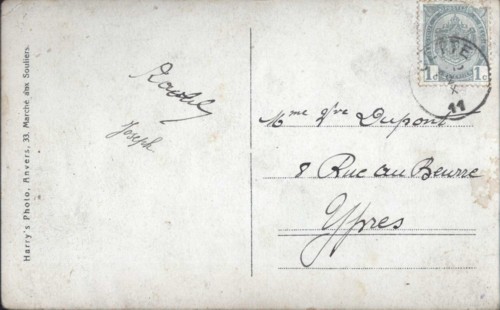 Harry's Photo, Anvers, 33, Marché aux Souliers.
Joseph
1c 1c
TTE
11
Mme Vve Dupont
8 Rue au Beurre
Ypres